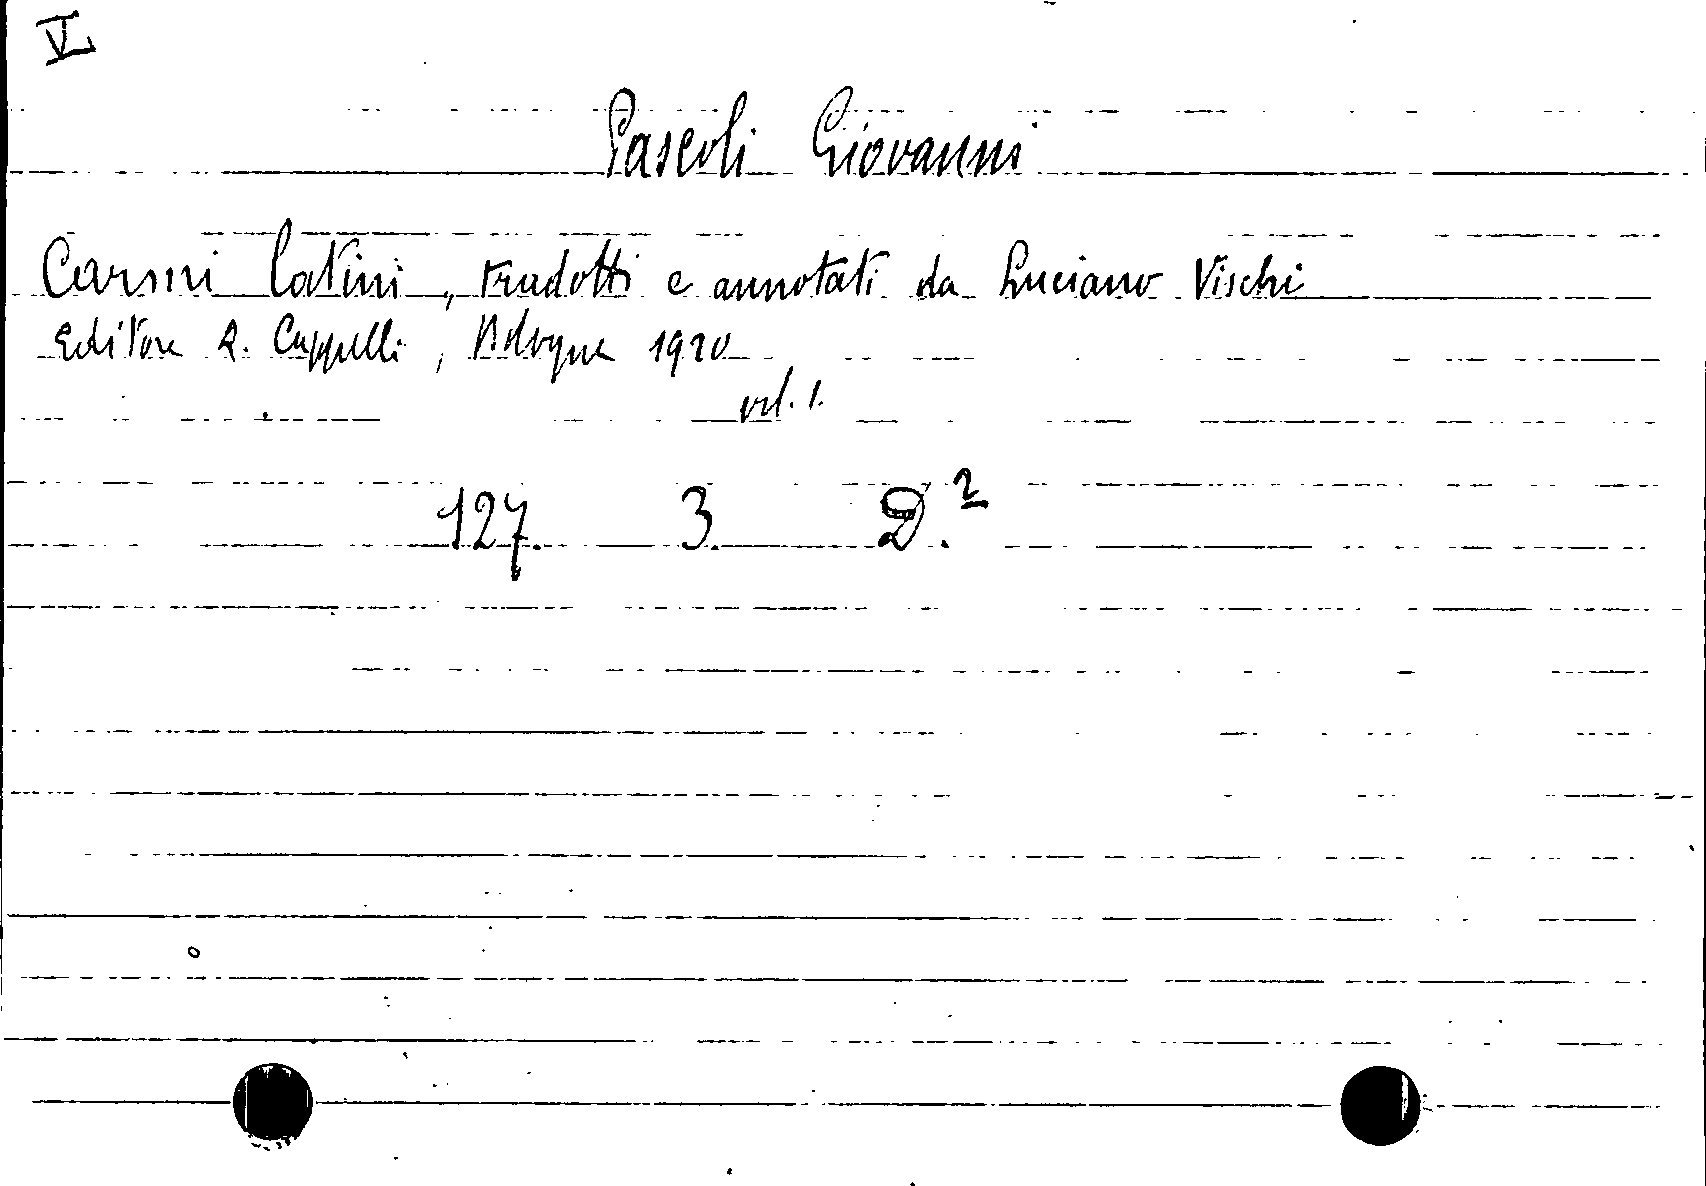 V
Pascoli Giovanni
Carmi latini, tradotti e annotati da Luciano Vischi
Editore L. Cappelli, Bologna 1920
vol. 1.
127. 3. D.²